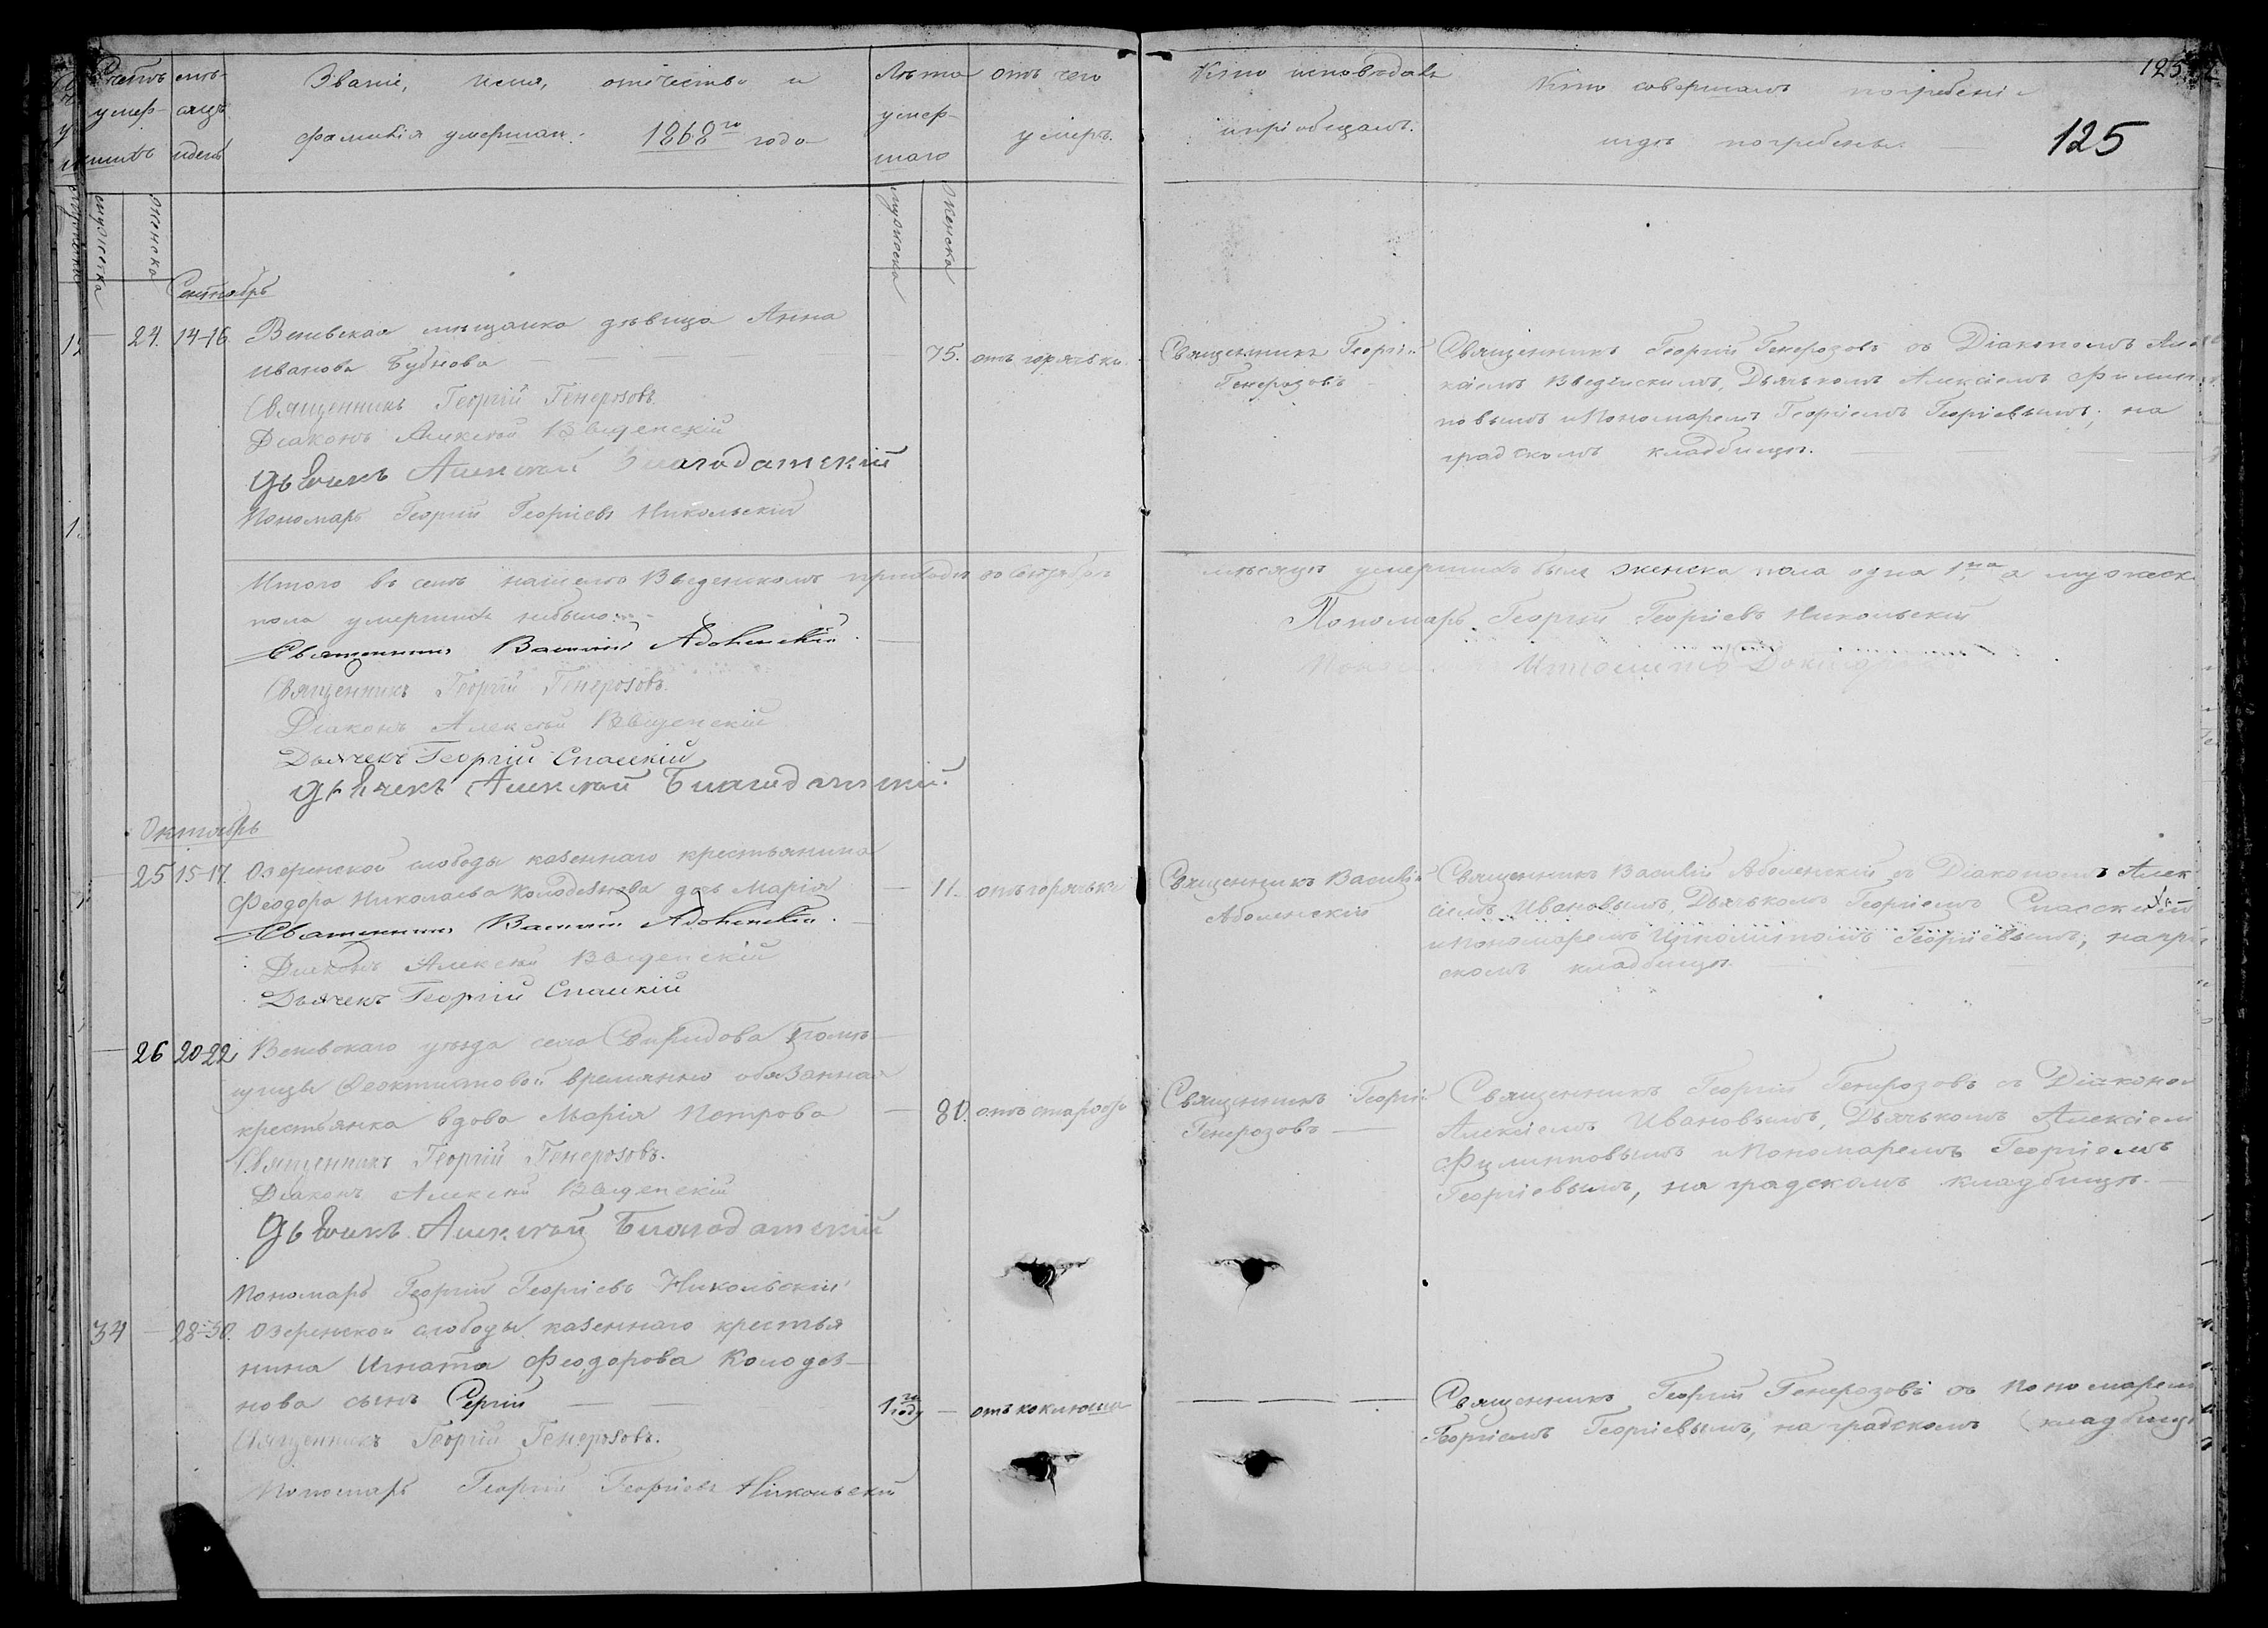 Счетъ умершихъ
мѣсяцъ и день
Званіе, имя, отчество и
фамилія умершаго. 1868го года
Лѣта умершаго
отъ чего умеръ.
Кто исповѣдалъ и пріобщалъ.
Кто совершалъ погребеніе
и гдѣ погребены. —
125
125
мужеска
женска
мужеска
женска
Сентябрь
— 24. 14-16. Веневская мѣщанка дѣвица Анна
Иванова Бубнова — —
75. отъ горячки.
Священникъ Георгій Генерозовъ
Діаконъ Алексѣй Введенскій
Дьячекъ Алексѣй Благодатскій
Пономарь Георгій Георгіевъ Никольскій
Священникъ Георгій
Генерозовъ
Священникъ Георгій Генерозовъ съ Діакономъ Але
ксіемъ Введенскимъ, Дьячькомъ Алексіемъ Филип
повымъ и Пономаремъ Георгіемъ Георгіевымъ, на
градскомъ кладбищѣ.
Итого въ семъ нашемъ Введенскомъ приходѣ въ Сентябрѣ мѣсяцѣ умершихъ было женска пола одна 1на а мужеск
пола умершихъ небыло
Священникъ Василій Аболенскій
Священникъ Георгій Генерозовъ
Діаконъ Алексѣй Введенскій
Дьячекъ Георгій Спасскій
Дьячекъ Алексѣй Благодатскій.
Пономарь Георгій Георгіевъ Никольскій
Октябрь
— 25 15-17. Озеренской слободы казеннаго крестьянина
Феодора Николаева Колодезнова дочь Марія
— 11. отъ горячьки
Священникъ Василій Аболенскій
Діаконъ Алексѣй Введенскій
Дьячекъ Георгій Спасскій
Священникъ Василій
Аболенскій
Священникъ Василій Аболенскій съ Діакономъ Алек
сіемъ Ивановымъ, Дьячькомъ Георгіемъ Спасским
и Пономаремъ Ипполитомъ Георгіевымъ, на град
скомъ кладбищѣ.
— 26 20-22 Веневскаго уѣзда села Свиридова Помѣ
щицы Феоктистовой временно обязанная
крестьянка вдова Марія Петрова
— 80. отъ старости
Священникъ Георгій Генерозовъ.
Діаконъ Алексѣй Введенскій
Дьячекъ Алексѣй Благодатскій
Пономарь Георгій Георгіевъ Никольскій
Священникъ Георгій
Генерозовъ —
Священникъ Георгій Генерозовъ съ Діаконом
Алексіемъ Ивановымъ, Дьячькомъ Алексіем
Филипповымъ и Пономаремъ Георгіемъ
Георгіевымъ, на градскомъ кладбищѣ. —
34 — 28-30. Озеренской слободы казеннаго крестья
нина Игната Феодорова Колодез
нова сынъ Сергій — —
1го году — отъ коклюша
Священникъ Георгій Генерозовъ.
Пономарь Георгій Георгіевъ Никольскій
Священникъ Георгій Генерозовъ съ Пономарем
Георгіемъ Георгіевымъ, на градскомъ кладбищѣ